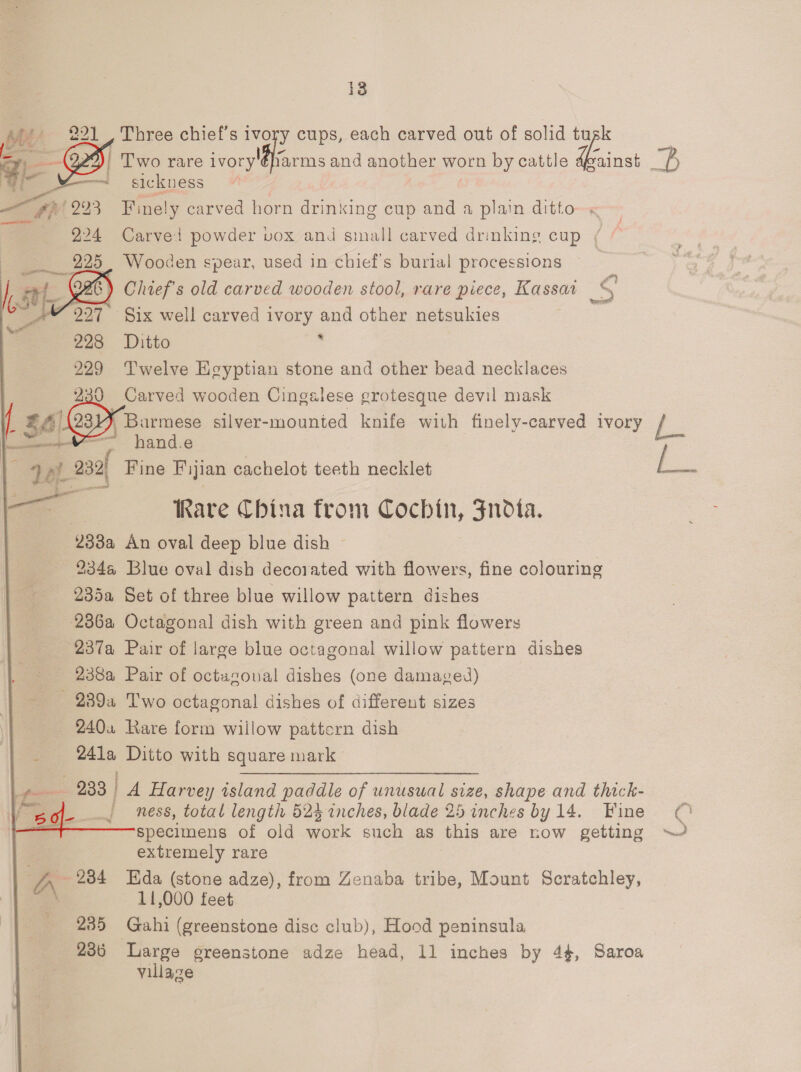 13
221 Three chief's ivory cups, each carved out of solid tusk
222 Two rare ivory charms and another worn by cattle against B
sickness
223 Finely carved horn drinking cup and a plain ditto
224 Carved powder box and small carved drinking cup
225 Wooden spear, used in chief's burial processions
226 Chief's old carved wooden stool, rare piece, Kassai S
227 Six well carved ivory and other netsukies
228 Ditto
229 Twelve Egyptian stone and other bead necklaces
230 Carved wooden Cingalese grotesque devil mask
231 Burmese silver-mounted knife with finely-carved ivory L
handle
232 Fine Fijian cachelot teeth necklet L
Rare China from Cochin, India.
233a An oval deep blue dish
234a Blue oval dish decorated with flowers, fine colouring
235a Set of three blue willow pattern dishes
236a Octagonal dish with green and pink flowers
237a Pair of large blue octagonal willow pattern dishes
238a Pair of octagonal dishes (one damaged)
239a Two octagonal dishes of different sizes
240a Rare form willow pattern dish
241a Ditto with square mark
233 A Harvey island paddle of unusual size, shape and thick-
50/- ness, total length 52½ inches, blade 25 inches by 14. Fine S
specimens of old work such as this are now getting
extremely rare
234 Eda (stone adze), from Zenaba tribe, Mount Scratchley,
11,000 feet
235 Gahi (greenstone disc club), Hood peninsula
236 Large greenstone adze head, 11 inches by 4½, Saroa
village